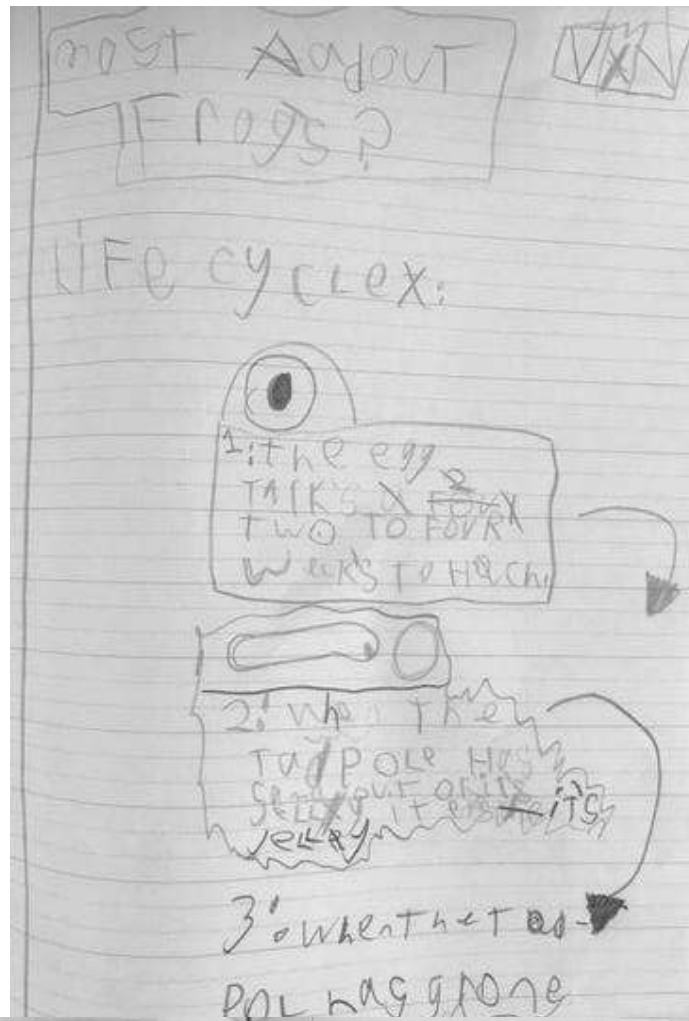 most Aadout
Frogs?
Life cycLex:
1: the egg
TAIK'S
TWO TO FOUR
weeks To HaCh
2: when The
TadpoLe Has
out
it's
Jelley
3: when The Tad-
POL has grone